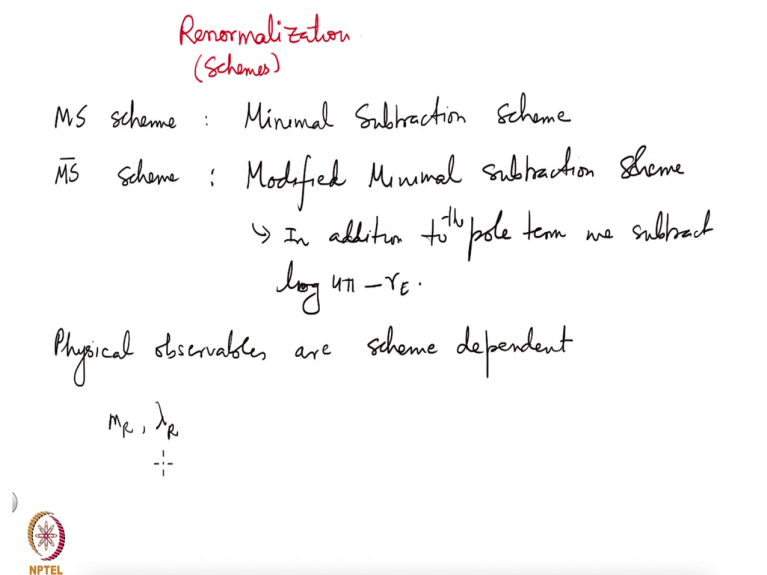 Renormalization
(Schemes)
MS scheme : Minimal Subtraction Scheme
M̅S̅ scheme : Modified Minimal subtraction Sheme
↳ In addition to the pole term we subtract
log 4π − γ_E .
Physical observables are scheme dependent
m_R , λ_R
NPTEL